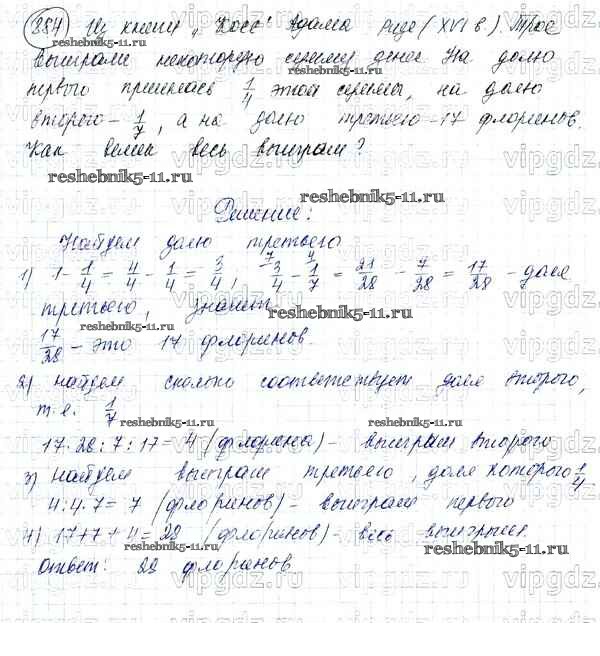 384) Из книги „Косс" Адама Ризе (XVI в.). Трое
выиграли некоторую сумму денег. На долю
первого пришлась 1/4 этой суммы, на долю
второго – 1/7, а на долю третьего – 17 флоринов.
Как велик весь выигрыш?
reshebnik5-11.ru
reshebnik5-11.ru
Решение:
Найдем долю третьего
1) 1 - 1/4 = 4/4 - 1/4 = 3/4; 3/4 - 1/7 = 21/28 - 7/28 = 17/28 - доля
третьего, значит
reshebnik5-11.ru
17/28 – это 17 флоринов.
2) найдем сколько соответствует доля второго,
т.е. 1/7
reshebnik5-11.ru
17·28:7:17=4 (флорина) – выиграл второго
3) найдем выиграл третьего, доля которого 1/4
4:4·7=7 (флоринов) – выиграл первого
4) 17+7+4=28 (флоринов) – весь выигрыш.
reshebnik5-11.ru
reshebnik5-11.ru
Ответ: 28 флоринов.
vipgdz.ru